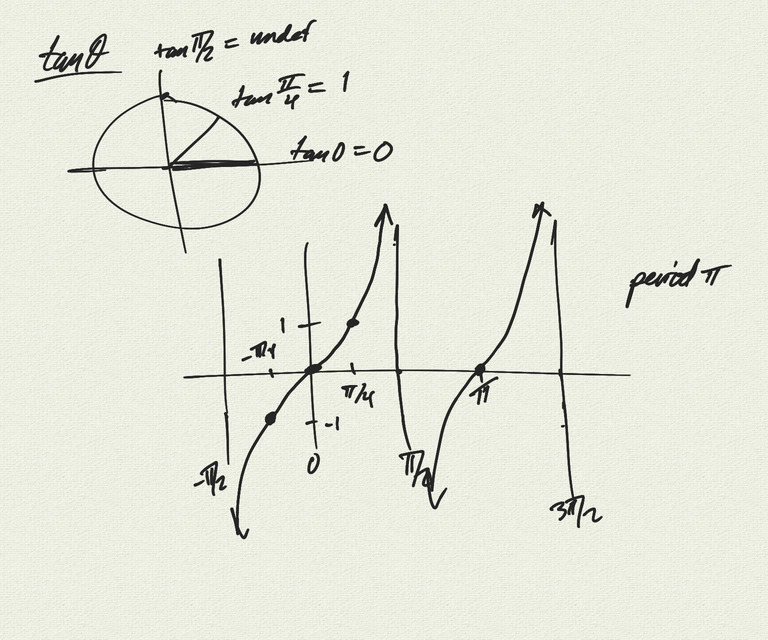 tan θ
tan π/2 = undef
tan π/4 = 1
tan 0 = 0
period π
1
-π/4
π/4
π
-1
-π/2
0
π/2
3π/2